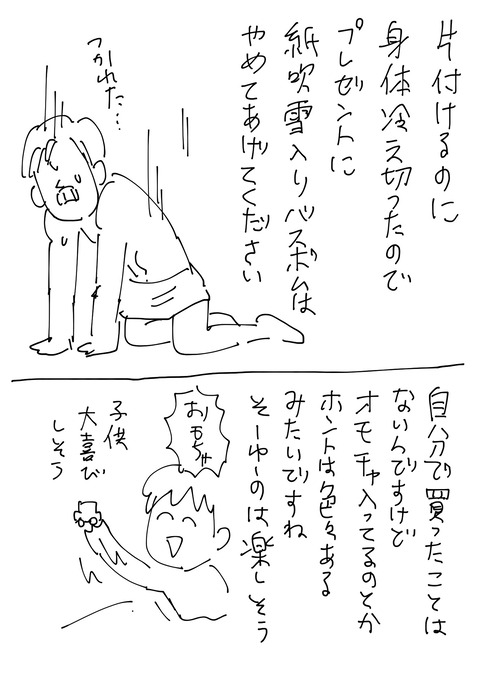 片付けるのに
身体冷え切ったので
プレゼントに
紙吹雪入りバスボムは
やめてあげてください
つかれた…
自分で買ったことは
ないんですけど
オモチャ入ってるのとか
ホントは色々ある
みたいですね
そーゆーのは楽しそう
おもちゃ
子供
大喜び
しそう